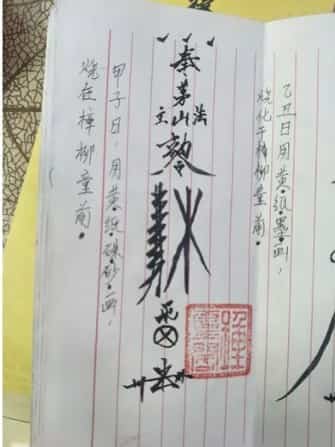 乙丑日用黄纸墨画，
烧化于樟柳童前。
奉茅山法主敕令
甲子日，用黄纸硃砂画，
烧在樟柳童前。